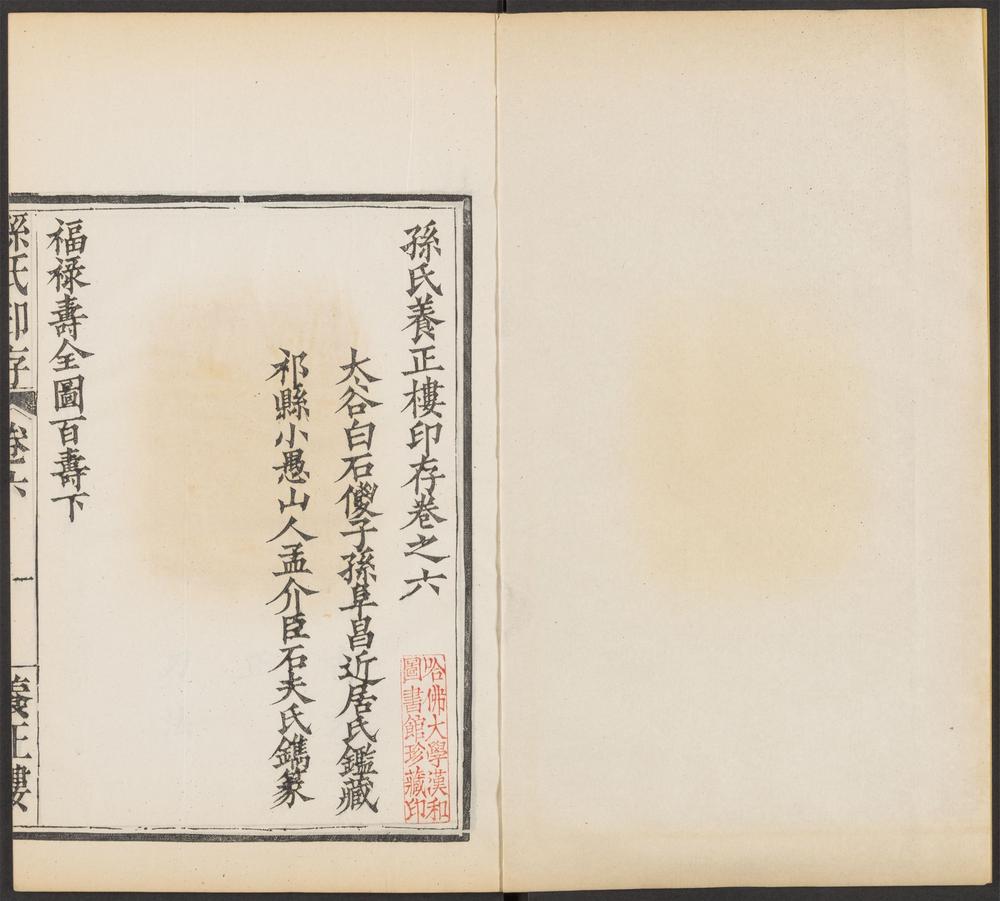 孫氏養正樓印存卷之六
太谷白石傻子孫阜昌近居氏鑑藏
祁縣小愚山人孟介臣石夫氏鐫篆
哈佛大學漢和
圖書館珍藏印
福祿壽全圖百壽下
孫氏印存 卷六 一 養正樓